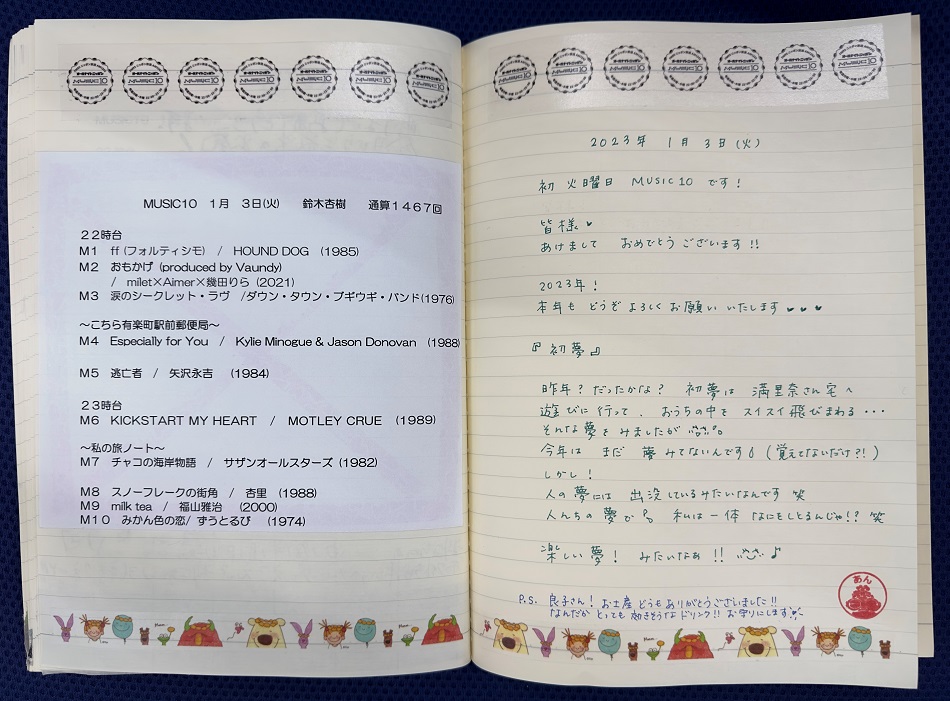 MUSIC10　1月　3日(火)　鈴木杏樹　通算1467回
22時台
M1　ff (フォルティシモ)　/　HOUND DOG　(1985)
M2　おもかげ (produced by Vaundy)
/　milet×Aimer×幾田りら (2021)
M3　涙のシークレット・ラヴ　/ダウン・タウン・ブギウギ・バンド(1976)
～こちら有楽町駅前郵便局～
M4　Especially for You　/　Kylie Minogue & Jason Donovan　(1988)
M5　逃亡者　/　矢沢永吉　(1984)
23時台
M6　KICKSTART MY HEART　/　MOTLEY CRUE　(1989)
～私の旅ノート～
M7　チャコの海岸物語　/　サザンオールスターズ (1982)
M8　スノーフレークの街角　/　杏里　(1988)
M9　milk tea　/　福山雅治　(2000)
M10　みかん色の恋/ ずうとるび　(1974)
2023年　1月　3日(火)
初 火曜日　MUSIC10 です!
皆様♥
あけまして　おめでとう ございます!!
2023年!
本年も どうぞ よろしく お願い いたします♥♥♥
『初夢』
昨年? だったかな?　初夢は 満里奈さん宅へ
遊びに 行って、おうちの中を スイスイ 飛びまわる・・・
そんな夢を みましたが
今年は まだ 夢 みてないんです (覚えてないだけ?!)
しかし!
人の夢には 出没しているみたいなんです 笑
人んちの 夢で 私は一体 なにをしとるんじゃ!? 笑
楽しい夢! みたいなぁ!! ♪
P.S. 良子さん! お土産 どうも ありがとうございました!!
なんだか とっても 効きそうな ドリンク!! お守りにします
あん
MUSIC10